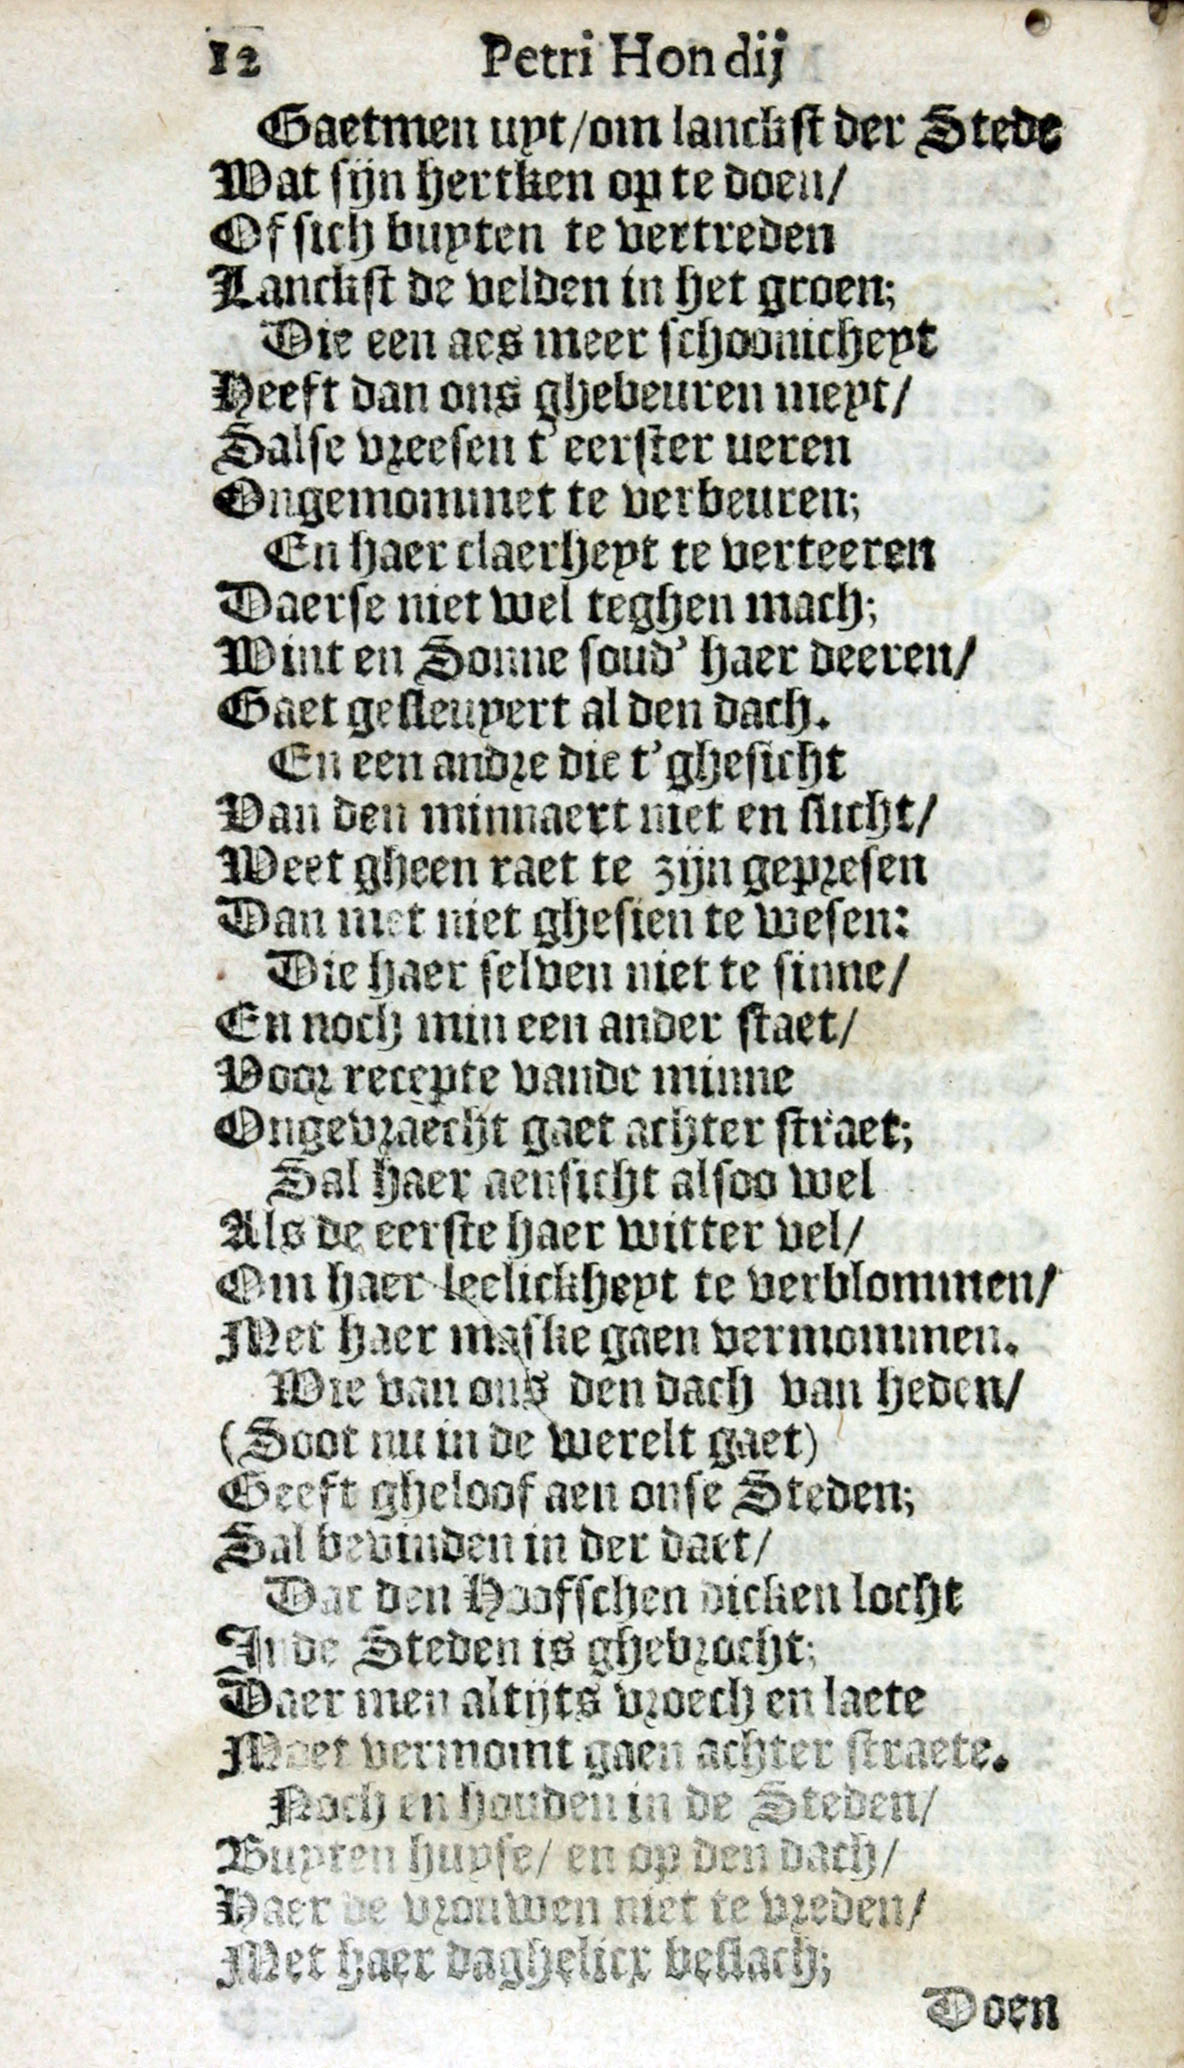 12 Petri Hondij
Gaetmen uyt/om lanckst der Stede
Wat sijn hertken op te doen/
Of sich buyten te vertreden
Lanckst de velden in het groen;
Die een aes meer schoonicheyt
Heeft dan ons ghebeuren meyt/
Salse vreesen t'eerster ueren
Ongemommet te verbeuren;
En haer claerheyt te verteeren
Daerse niet wel teghen mach;
Wint en Sonne soud' haer deeren/
Gaet gesleuyert al den dach.
En een andre die t'ghesicht
Van den minnaert niet en sticht/
Weet gheen raet te zijn gepresen
Dan met niet ghesien te wesen:
Die haer selven niet te sinne/
En noch min een ander staet/
Voor recepte vande minne
Ongevraecht gaet achter straet;
Sal haer aensicht alsoo wel
Als de eerste haer witter vel/
Om haer leelickheyt te verblommen/
Met haer maske gaen vermommen.
Wie van ons den dach van heden/
(Soot nu in de werelt gaet)
Geeft gheloof aen onse Steden;
Sal bevinden in der daet/
Dat den Hoofschen dicken locht
In de Steden is ghebrocht;
Daer men altijts vroech en laete
Moet vermomt gaen achter straete.
Noch en houden in de Steden/
Buyten huyse/ en op den dach/
Haer de vrouwen niet te vreden/
Met haer daghelicx beslach;
Doen